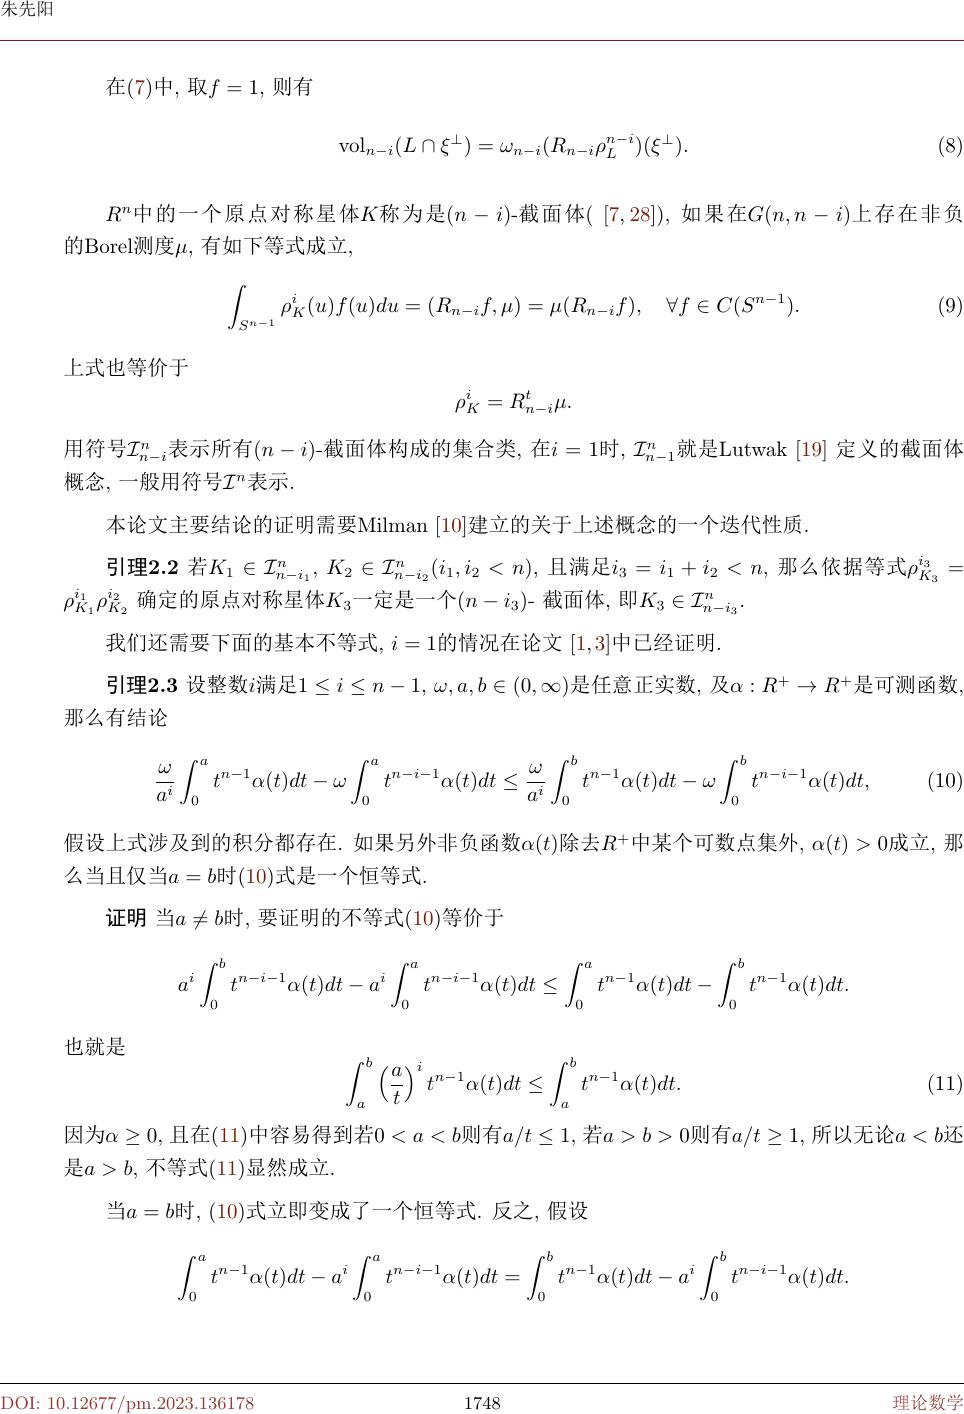 朱先阳
在(7)中, 取f = 1, 则有
vol_{n−i}(L ∩ ξ^⊥) = ω_{n−i}(R_{n−i}ρ_L^{n−i})(ξ^⊥). (8)
R^n中的一个原点对称星体K称为是(n − i)-截面体( [7, 28]), 如果在G(n, n − i)上存在非负
的Borel测度μ, 有如下等式成立,
∫_{S^{n−1}} ρ_K^i(u)f(u)du = (R_{n−i}f, μ) = μ(R_{n−i}f), ∀f ∈ C(S^{n−1}). (9)
上式也等价于
ρ_K^i = R_{n−i}^t μ.
用符号I_{n−i}^n表示所有(n − i)-截面体构成的集合类, 在i = 1时, I_{n−1}^n就是Lutwak [19] 定义的截面体
概念, 一般用符号I^n表示.
本论文主要结论的证明需要Milman [10]建立的关于上述概念的一个迭代性质.
引理2.2 若K_1 ∈ I_{n−i_1}^n, K_2 ∈ I_{n−i_2}^n(i_1, i_2 < n), 且满足i_3 = i_1 + i_2 < n, 那么依据等式ρ_{K_3}^{i_3} =
ρ_{K_1}^{i_1}ρ_{K_2}^{i_2} 确定的原点对称星体K_3一定是一个(n − i_3)- 截面体, 即K_3 ∈ I_{n−i_3}^n.
我们还需要下面的基本不等式, i = 1的情况在论文 [1,3]中已经证明.
引理2.3 设整数i满足1 ≤ i ≤ n − 1, ω, a, b ∈ (0, ∞)是任意正实数, 及α : R^+ → R^+是可测函数,
那么有结论
\frac{ω}{a^i} ∫_0^a t^{n−1}α(t)dt − ω ∫_0^a t^{n−i−1}α(t)dt ≤ \frac{ω}{a^i} ∫_0^b t^{n−1}α(t)dt − ω ∫_0^b t^{n−i−1}α(t)dt, (10)
假设上式涉及到的积分都存在. 如果另外非负函数α(t)除去R^+中某个可数点集外, α(t) > 0成立, 那
么当且仅当a = b时(10)式是一个恒等式.
证明 当a ≠ b时, 要证明的不等式(10)等价于
a^i ∫_0^b t^{n−i−1}α(t)dt − a^i ∫_0^a t^{n−i−1}α(t)dt ≤ ∫_0^a t^{n−1}α(t)dt − ∫_0^b t^{n−1}α(t)dt.
也就是
∫_a^b (\frac{a}{t})^i t^{n−1}α(t)dt ≤ ∫_a^b t^{n−1}α(t)dt. (11)
因为α ≥ 0, 且在(11)中容易得到若0 < a < b则有a/t ≤ 1, 若a > b > 0则有a/t ≥ 1, 所以无论a < b还
是a > b, 不等式(11)显然成立.
当a = b时, (10)式立即变成了一个恒等式. 反之, 假设
∫_0^a t^{n−1}α(t)dt − a^i ∫_0^a t^{n−i−1}α(t)dt = ∫_0^b t^{n−1}α(t)dt − a^i ∫_0^b t^{n−i−1}α(t)dt.
DOI: 10.12677/pm.2023.136178 1748 理论数学